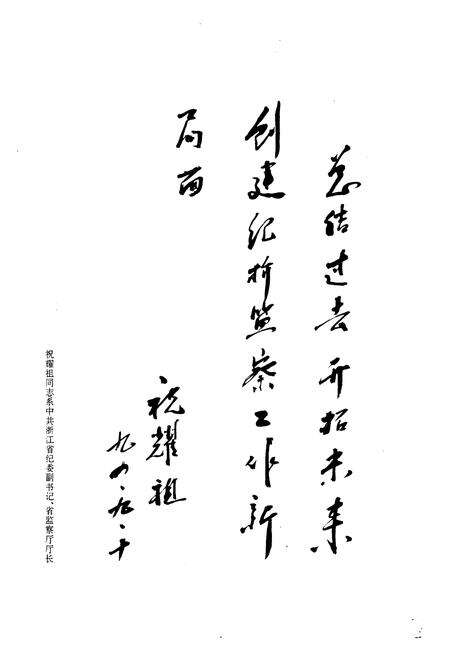 总结过去开拓未来
创建纪检监察工作新
局面
祝耀祖
九四·九·十
祝耀祖同志系中共浙江省纪委副书记、省监察厅厅长